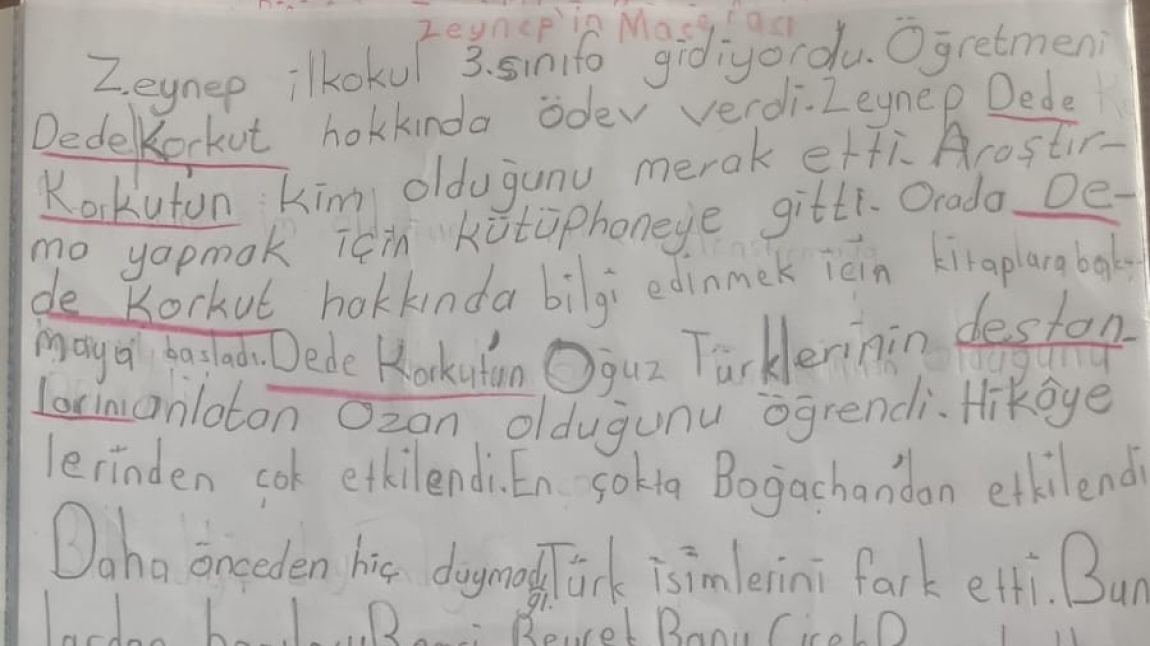 Zeynep'in Macerası
Zeynep ilkokul 3.sınıfa gidiyordu. Öğretmeni
Dede Korkut hakkında ödev verdi. Zeynep Dede
Korkutun kim olduğunu merak etti. Araştır-
ma yapmak için kütüphaneye gitti. Orada De-
de Korkut hakkında bilgi edinmek için kitaplara bak-
maya başladı. Dede Korkut'un Oğuz Türklerinin destan-
larını anlatan Ozan olduğunu öğrendi. Hikâye
lerinden çok etkilendi. En çokta Boğaçhan'dan etkilendi
Daha önceden hiç duymadığı Türk isimlerini fark etti. Bun
lardan Beyrek Banu